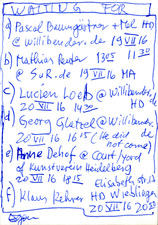 WAITING FOR
a) Pascal Baumgärtner + Mel HD
@ Willibender.de 19 VII 16
b) Mathias Reder 1305 1130
@ S.R.de 19 VII 16 MA
c) Lucien Loeb @ Willibender.
20 VII 16 1430 HD de
d) Georg Gloetzel @ Willibender
20 VII 16 1615 (He did de
not come)
e) Anne Dehof @ Court/yard
of Kunstverein Heidelberg
20 VII 16 1815
f) Klaus Kehrer HD Wieblingen
20 VII 16 20